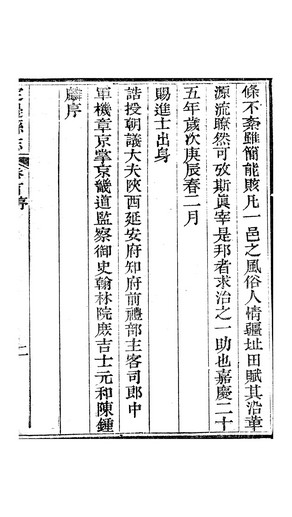 條不紊雖簡能賅凡一邑之風俗人情疆址田賦其沿革
源流瞭然可攷斯眞宰是邦者求治之一助也嘉慶二十
五年歲次庚辰春二月
賜進士出身
誥授朝議大夫陝西延安府知府前禮部主客司郎中
軍機章京掌京畿道監察御史翰林院庶吉士元和陳鍾
麟序